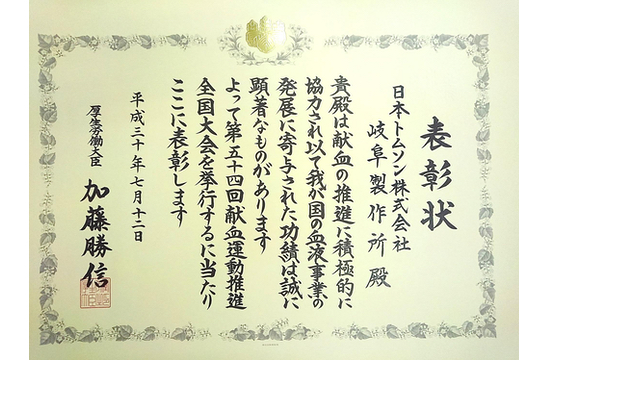 表彰状
日本トムソン株式会社
岐阜製作所殿
貴殿は献血の推進に積極的に
協力され以て我が国の血液事業の
発展に寄与された功績は誠に
顕著なものがあります
よって第五十四回献血運動推進
全国大会を挙行するに当たり
ここに表彰します
平成三十年七月十二日
厚生労働大臣
加藤勝信